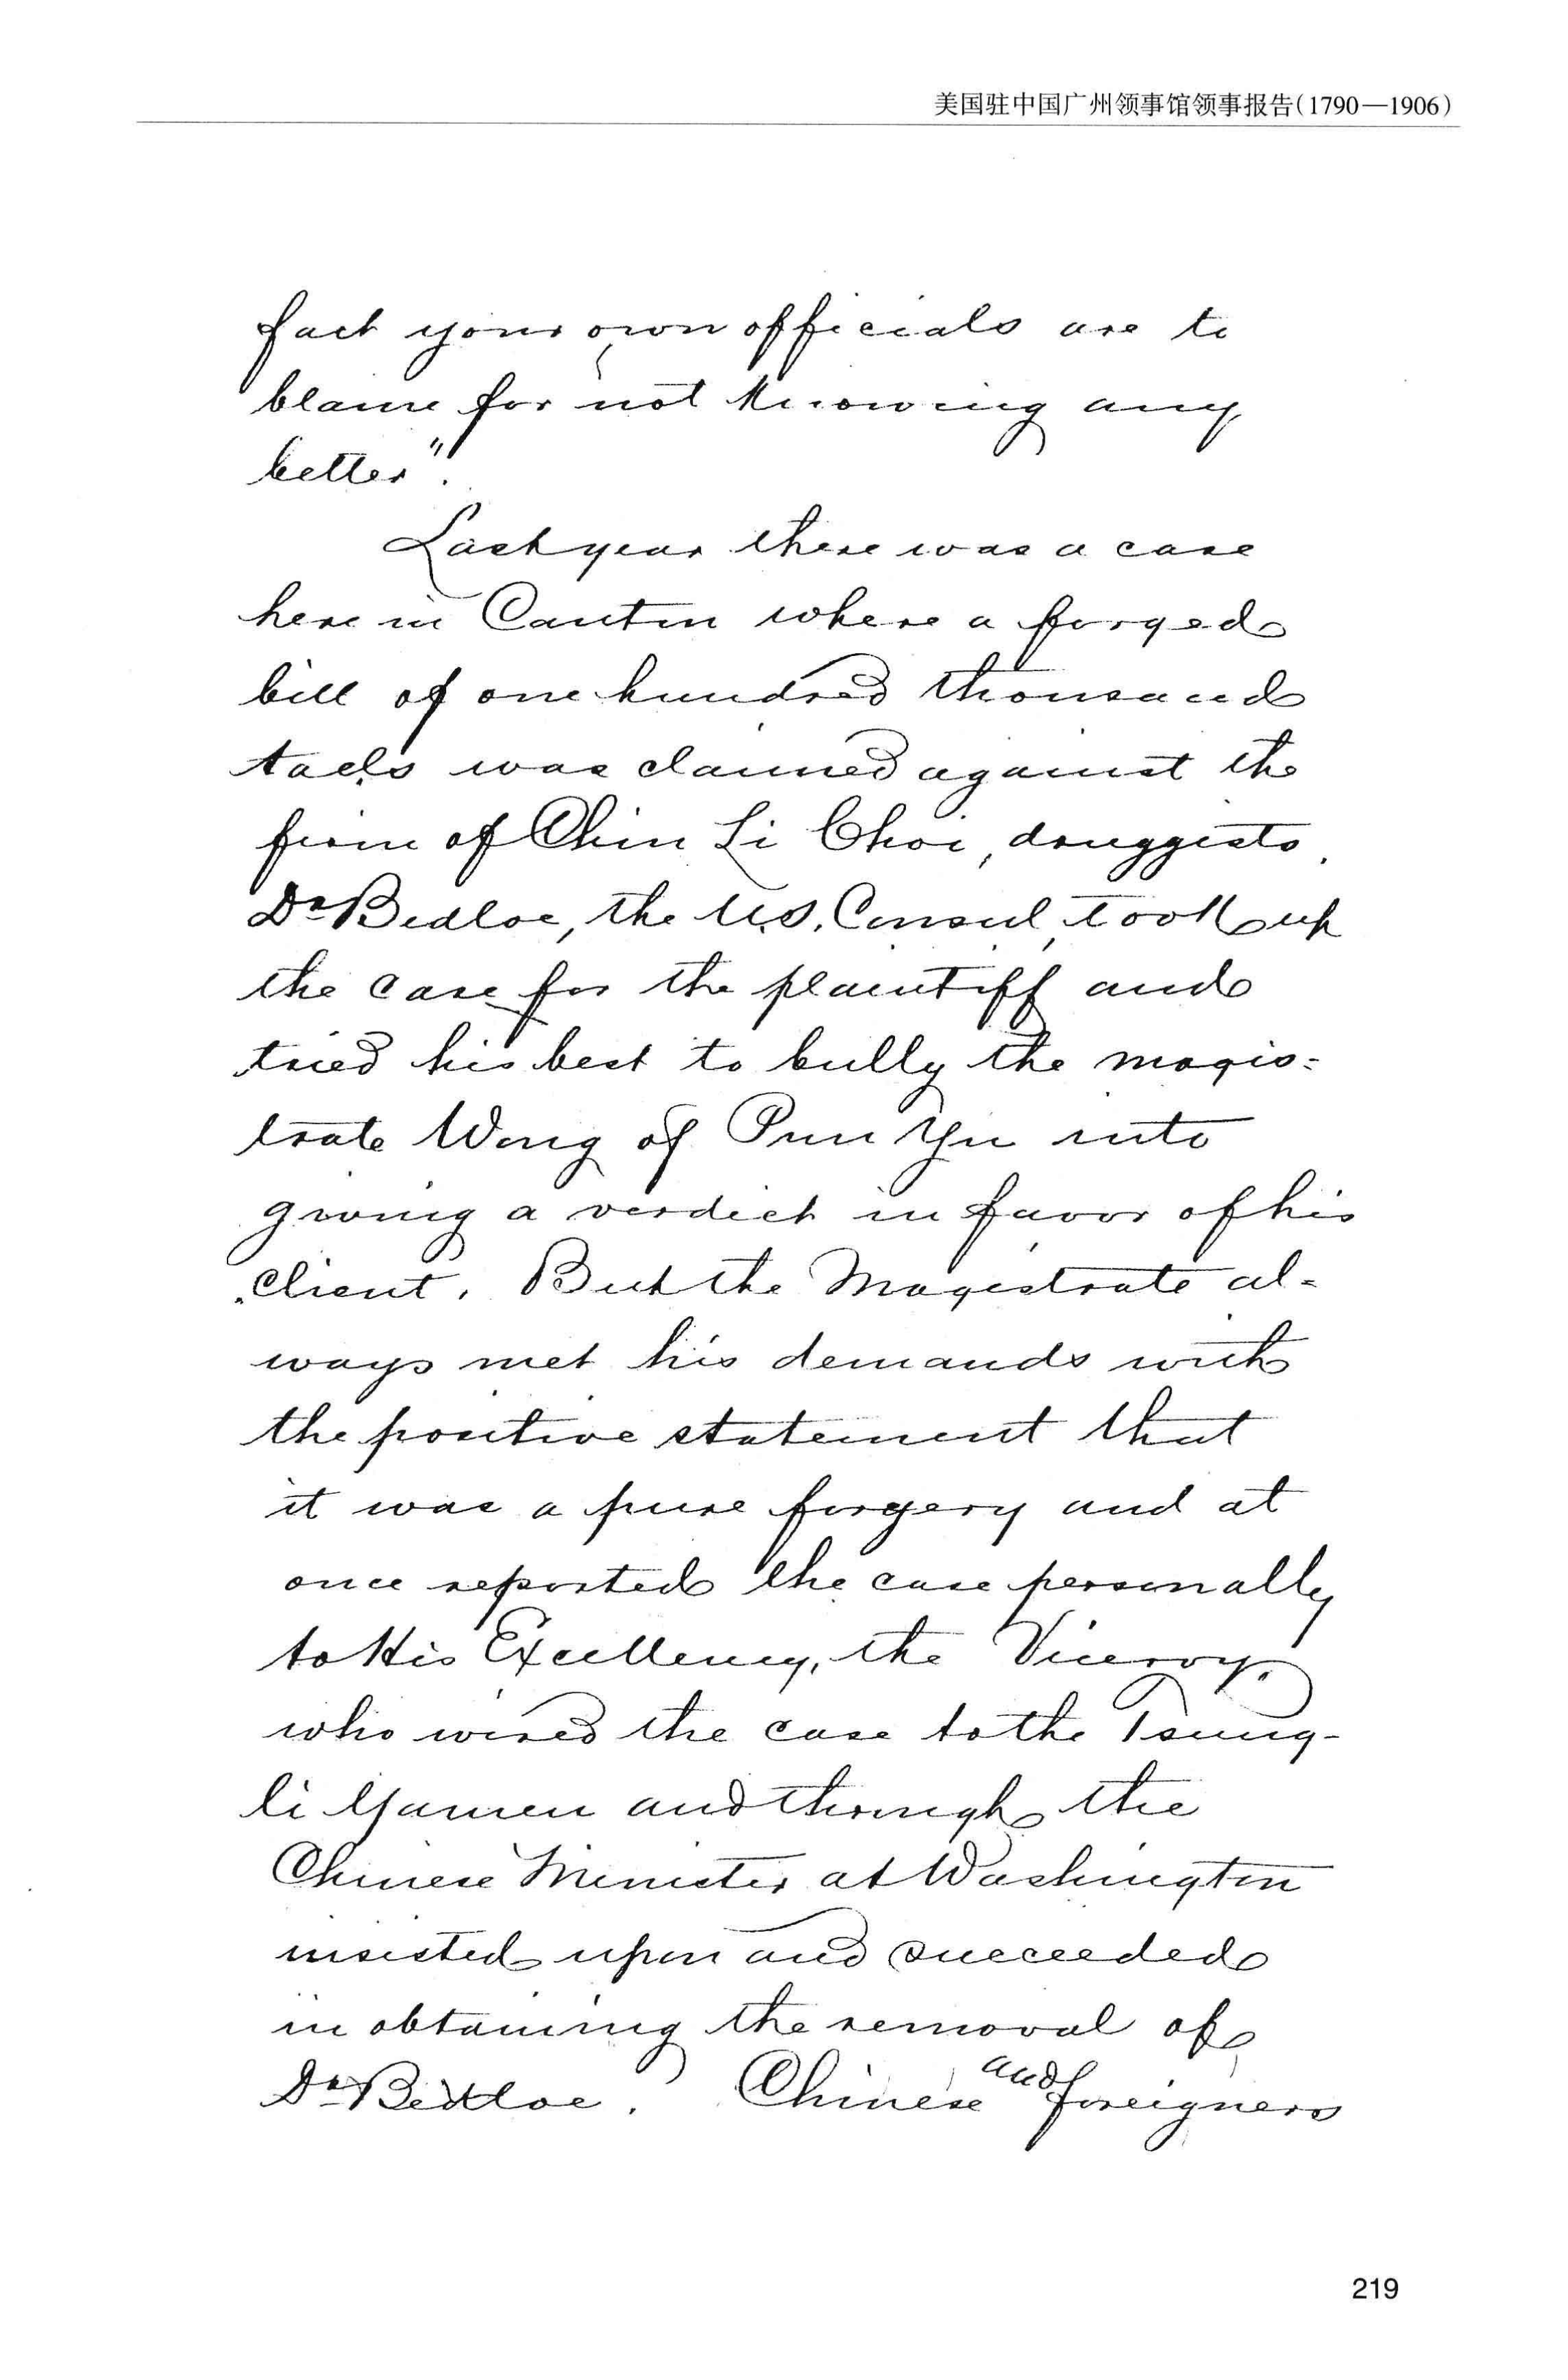 美国驻中国广州领事馆领事报告(1790—1906)
fact your own officials are to
blame for not knowing any
better".
Last year there was a case
here in Canton where a forged
bill of one hundred thousand
taels was claimed against the
firm of Chin Li Choi, druggists.
Dr Bedloe, the U.S. Consul, took up
the case for the plaintiff and
tried his best to bully the magis=
trate Wong of Pun Yu into
giving a verdict in favor of his
client. But the Magistrate al=
ways met his demands with
the positive statement that
it was a pure forgery and at
once reported the case personally
to His Excellency, the Viceroy,
who wired the case to the Tsung-
li Yamen and through the
Chinese Minister at Washington
insisted upon and succeeded
in obtaining the removal of
Dr Bedloe. Chinese and foreigners
219